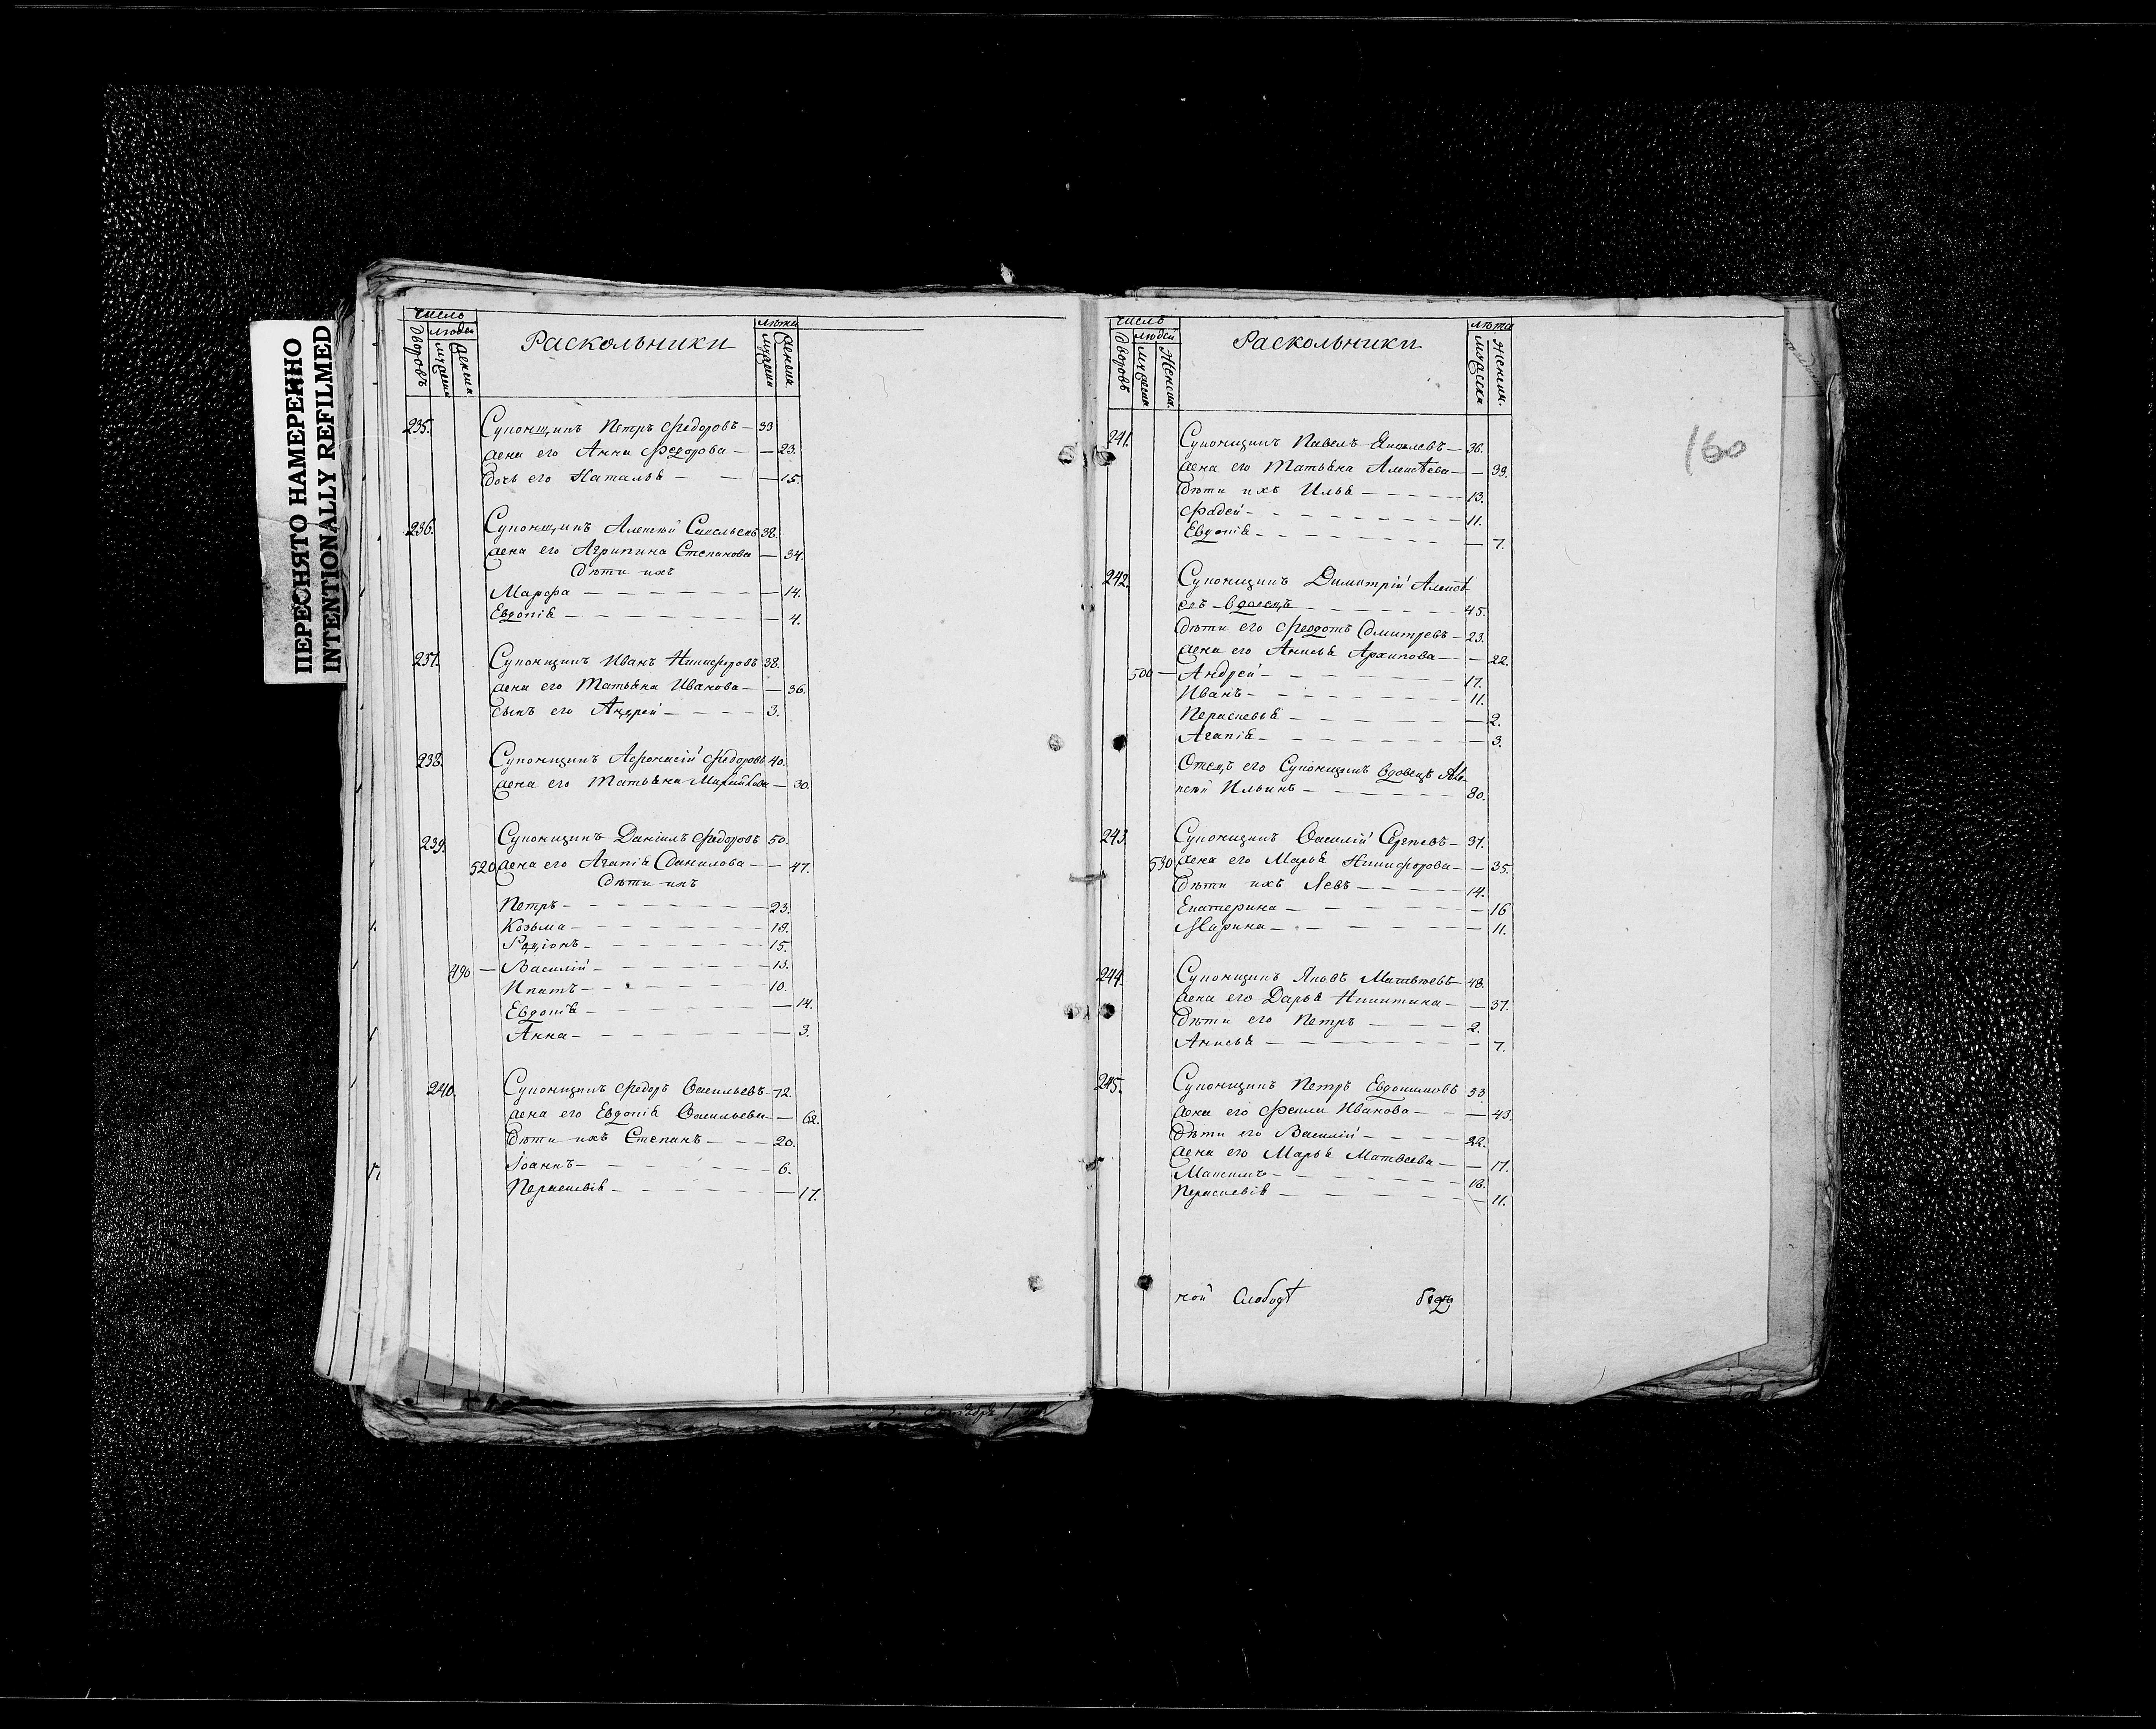 ПЕРЕСНЯТО НАМЕРЕННО
INTENTIONALLY REFILMED
число
людей
дворовъ
Раскольники
лѣта
235. Супонщинъ Петръ Федоровъ — 33
жена его Анна Федорова — — 23.
дочь его Наталья — — — 15.
236. Супонщинъ Алексѣй Савельевъ 38.
жена его Агрипина Степанова — 34.
дѣти ихъ
Марфа — — — — — 14.
Евдокія — — — — — 4.
237. Супонщинъ Иванъ Никифоровъ 38.
жена его Татьяна Иванова — — 36.
сынъ его Андрей — — — — 3.
238. Супонщинъ Афонасій Федоровъ 40.
жена его Татьяна Михайлова — 30.
239. Супонщинъ Даніилъ Федоровъ 50.
520 жена его Агапія Данилова — — 47.
дѣти ихъ
Петръ — — — — — 23.
Козьма — — — — — 18.
Родіонъ — — — — — 15.
490 — Василій — — — — — 13.
Ипатъ — — — — — 10.
Евдокія — — — — — 14.
Анна — — — — — 3.
240. Супонщинъ Федоръ Васильевъ — 72.
жена его Евдокія Васильева — 62.
дѣти ихъ Степанъ — — — 20.
Іоаннъ — — — — — 6.
Парасковія — — — — — 17.
число
людей
дворовъ
мужеска
женска.
Раскольники
лѣта
мужеска
женска.
160
241. Супонщинъ Павелъ Яковлевъ — 36.
жена его Татьяна Алексѣева — — 39.
дѣти ихъ Илья — — — — 13.
Фадей — — — — — 11.
Евдокія — — — — — 7.
242. Супонщинъ Димитрій Алексѣ
евъ — вдовецъ — — — — 45.
дѣти его Федотъ Дмитревъ — 23.
жена его Анисья Архипова — — 22.
500 — Андрей — — — — — 17.
Иванъ — — — — — 11.
Парасковья — — — — — 2.
Агапія — — — — — 3.
Отецъ его Супонщинъ вдовецъ Але-
ксѣй Ильинъ — — — — 80.
243. Супонщинъ Василій Сергѣевъ — 37.
530 жена его Марья Никифорова — — 35.
дѣти ихъ Левъ — — — — 14.
Екатерина — — — — — 16
Марина — — — — — 11.
244. Супонщинъ Яковъ Матвѣевъ — 48.
жена его Дарья Никитина — — 37.
дѣти его Петръ — — — 2.
Анисья — — — — — 7.
245. Супонщинъ Петръ Евдокимовъ 53
жена его Фекла Иванова — — 43.
дѣти его Василій — — — — 22.
жена его Марья Матвеева — — 17.
Максимъ — — — — — 18.
Парасковія — — — — — 11.
ной Слободѣ